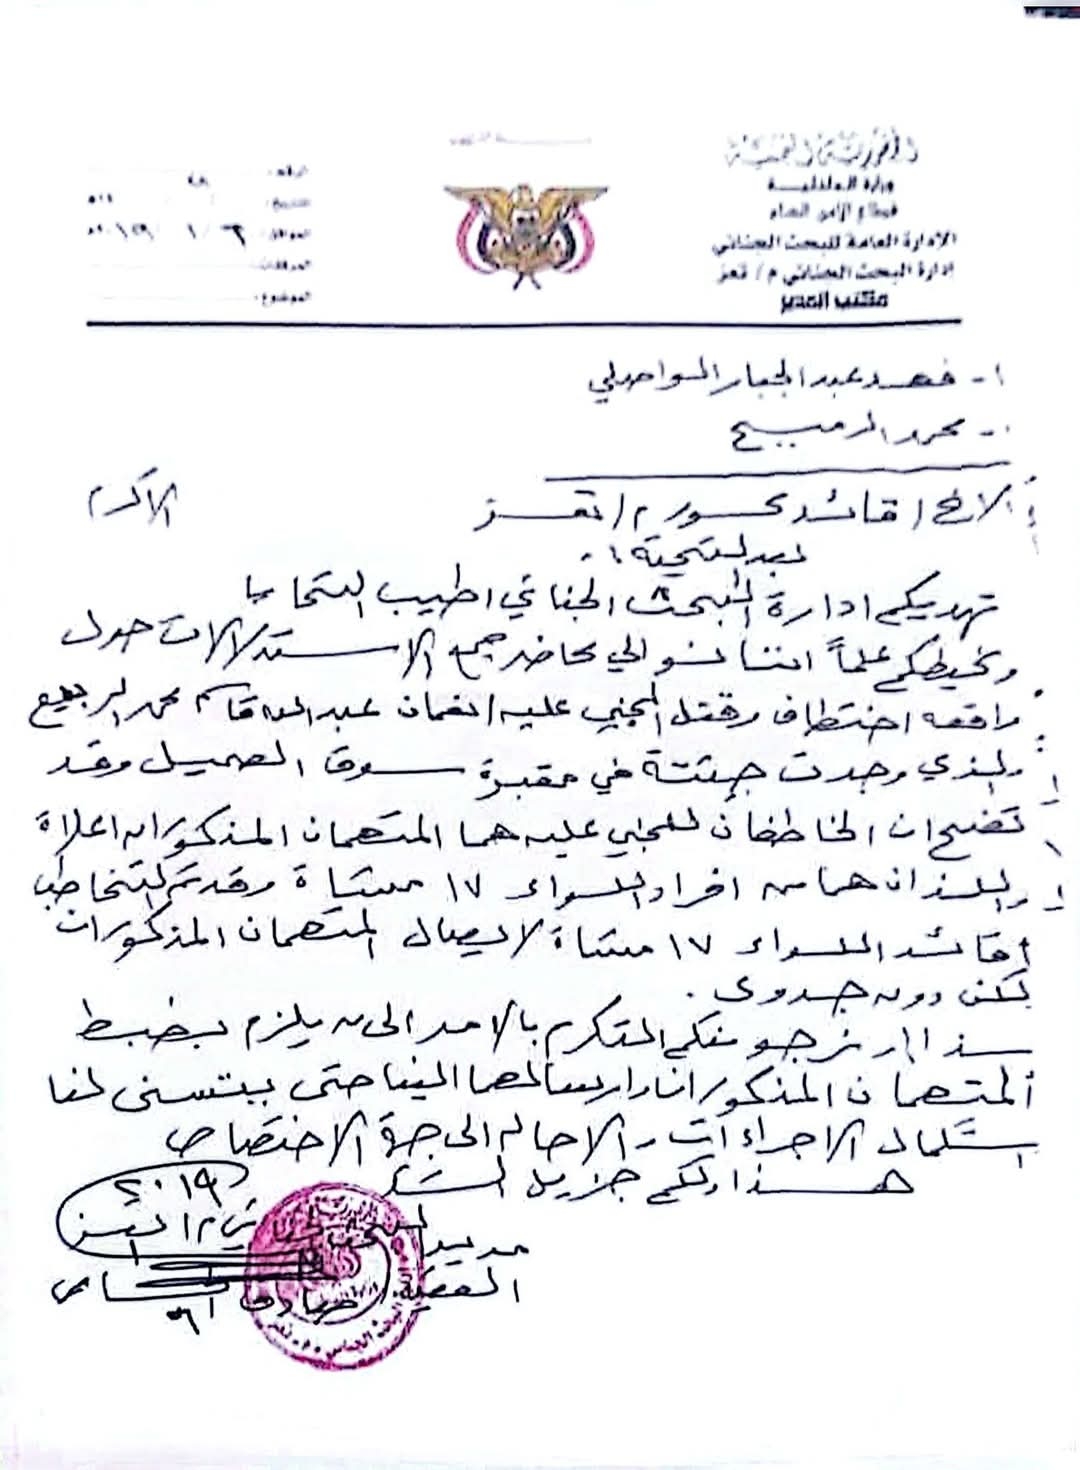 الجمهورية اليمنية
وزارة الداخلية
قطاع الأمن العام
الإدارة العامة للبحث الجنائي
إدارة البحث الجنائي م/ تعز
مكتب المدير
الرقم:
التاريخ:
الموافق: ٢٠١٩ / ١ / ٣
المرفقات:
الموضوع:
١- فهد عبدالجبار
٢- محمد الرميح
الاخ / قائد محور م/ تعز الاكرم
بعد التحية ،،
تهديكم ادارة البحث الجنائي اطيب التحايا
ونحيطكم علماً اننا نوالي محاضر جمع الاستدلالات حول
واقعه اختطاف وقتل المجني عليه / نعمان عبدالله قاسم محمد
والذي وجدت جثتة في مقبرة سوق الصميل وقد
تضح ان الخاطفان للمجني عليه هما المتهمان المذكوران اعلاة
واللذان هما من افراد اللواء ١٧ مشاة وقد تم التخاطب
قائد اللواء ١٧ مشاة لايصال المتهمان المذكوران
لكن دون جدوى .
نرجو منكم التكرم بالامر الى من يلزم بضبط
المتهمان المذكوران وارسالهما الينا حتى يتسنى لنا
استكمال الاجراءات والاحاله الى جهة الاختصاص
هذا ولكم جزيل الشكر
مدير البحث الجنائي م/ تعز
العقيد / صادق